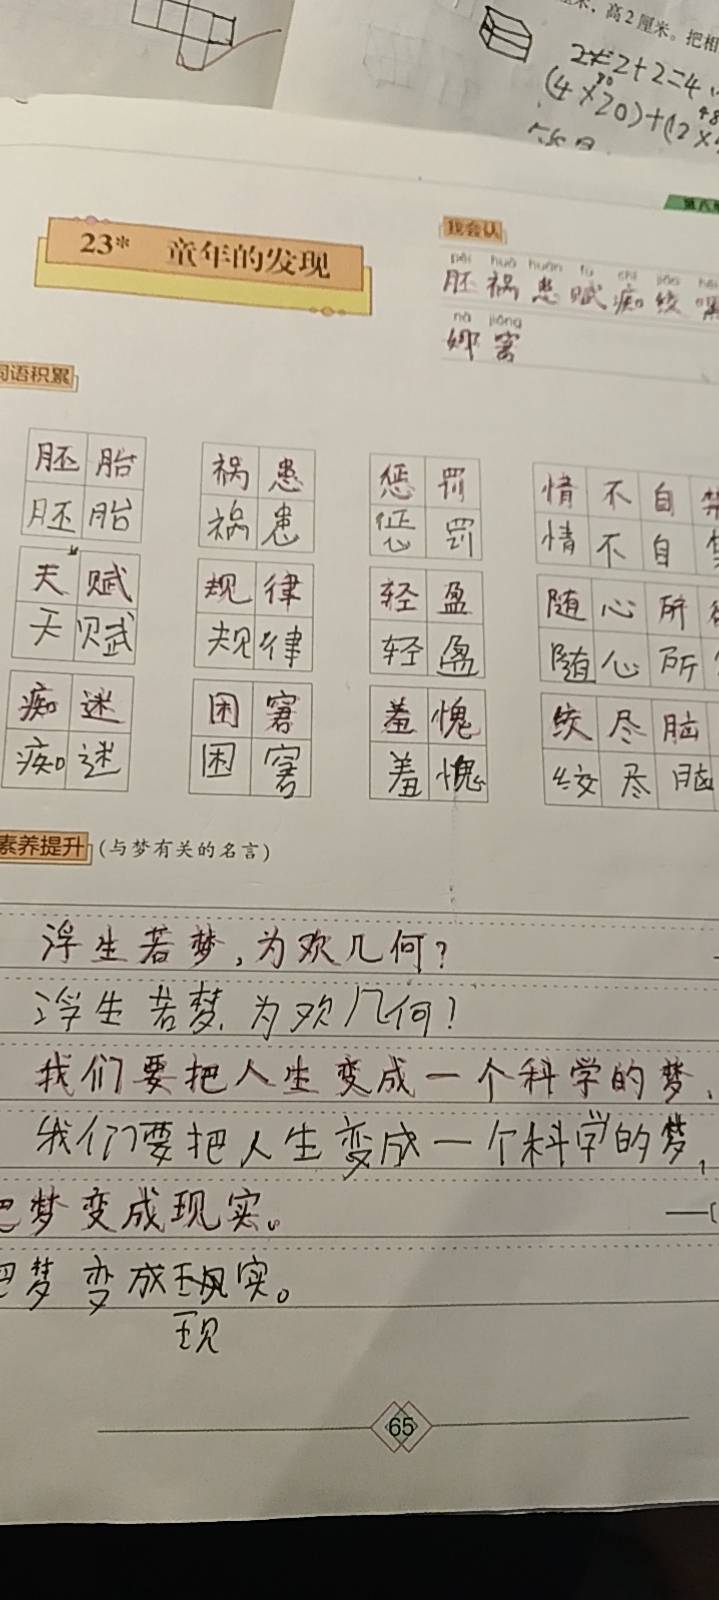 米，高2厘米。把相
2×2+2=4
(4×20)+(2×
第八单
23* 童年的发现
我会认
pēi huò huàn fù chī jiǎo hēi
胚 祸 患 赋 痴 绞 嘿
nà jiǒng
娜 窘
词语积累
胚胎 祸患 惩罚 情不自禁
胚胎 祸患 惩罚 情不自禁
天赋 规律 轻盈 随心所
天赋 规律 轻盈 随心所
痴迷 困窘 羞愧 绞尽脑
痴迷 困窘 羞愧 绞尽脑
素养提升 (与梦有关的名言)
浮生若梦,为欢几何?
浮生若梦,为欢几何?
我们要把人生变成一个科学的梦,
我们要把人生变成一个科学的梦,
把梦变成现实。 ——(
把梦变成现实。
现
65